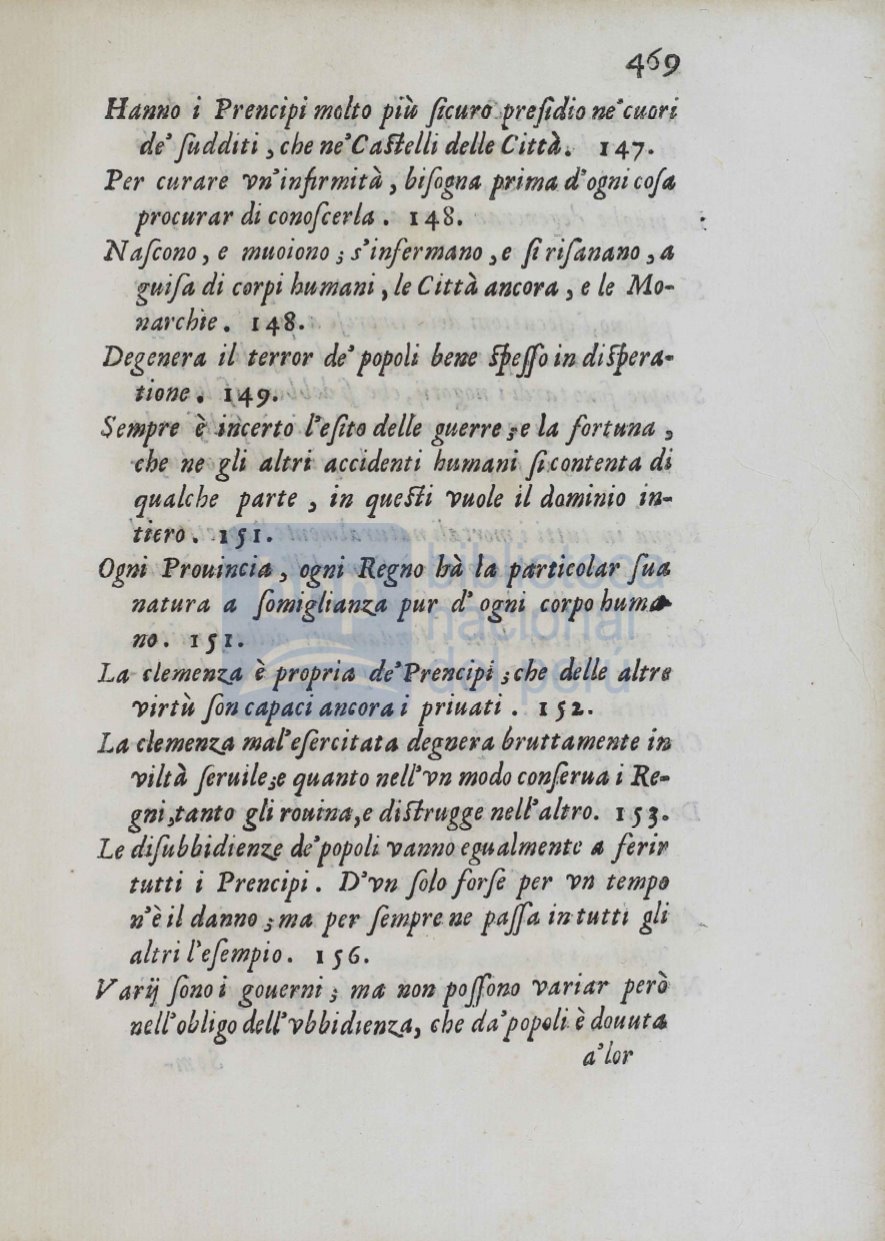 469
Hanno i Prencipi molto più ſicuro preſidio ne'cuori
de' ſudditi, che ne'Caſtelli delle Città. 147.
Per curare vn'infirmità, biſogna prima d'ogni coſa
procurar di conoſcerla. 148.
Naſcono, e muoiono; s'infermano, e ſi riſanano, a
guiſa di corpi humani, le Città ancora, e le Mo-
narchie. 148.
Degenera il terror de' popoli bene ſpeſſo in diſpera-
tione. 149.
Sempre è incerto l'eſito delle guerre; e la fortuna,
che ne gli altri accidenti humani ſi contenta di
qualche parte, in queſti vuole il dominio in-
tiero. 151.
Ogni Prouincia, ogni Regno hà la particolar ſua
natura a ſomiglianza pur d' ogni corpo huma-
no. 151.
La clemenza è propria de'Prencipi; che delle altre
virtù ſon capaci ancora i priuati. 152.
La clemenza mal'eſercitata degnera bruttamente in
viltà ſeruile; e quanto nell'vn modo conſerua i Re-
gni, tanto gli rouina, e diſtrugge nell'altro. 153.
Le diſubbidienze de'popoli vanno egualmente a ferir
tutti i Prencipi. D'vn ſolo forſe per vn tempo
n'è il danno; ma per ſempre ne paſſa in tutti gli
altri l'eſempio. 156.
Varij ſono i gouerni; ma non poſſono variar però
nell'obligo dell'vbbidienza, che da'popoli è douuta
a'lor
biblioteca
nacional
del perú